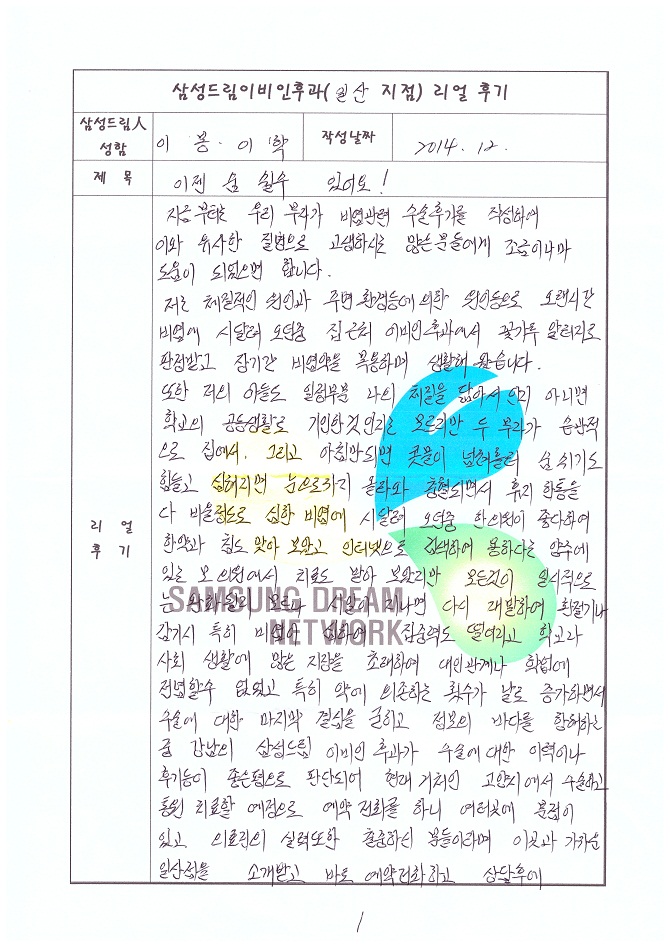 삼성드림이비인후과( 일산 지점) 리얼 후기
삼성드림人
성함
이 봉·이 학
작성날짜
2014. 12.
제 목
이젠 숨 쉴수 있어요!
리 얼
후 기
지금 부터는 우리 부자가 비염관련 수술후기를 작성하여
이와 유사한 질병으로 고생하시는 많은분들에게 조금이나마
도움이 되었으면 합니다.
저는 체질적인 원인과 주변환경등에의한 원인등으로 오랜시간
비염에 시달려 오던중 집근처 이비인후과에서 꽃가루 알러지로
판정받고 장기간 비염약을 복용하며 생활해 왔습니다.
또한 저의 아들도 일정부분 나의 체질을 닮아서인지 아니면
학교의 공동생활로 기인한것인지는 모르지만 두 부자가 습관적
으로 집에서. 그리고 아침만되면 콧물이 넘쳐흘러 숨쉬기도
힘들고 심해지면 눈으로까지 올라와 충혈되면서 휴지 한통을
다 비울정도로 심한 비염에 시달려 오던중 한의원이 좋다하여
한약과 침도 맞아 보았고 인터넷으로 검색하여 용하다는 양주에
있는 모 의원에서 치료도 받아 보았지만 모든것이 일시적으로
는 완화될뿐 모두다 시일이 지나면 다시 재발하여 환절기나
감기시 특히 비염이 심하여 집중력도 떨어지고 학교과
사회 생활에 많은 지장을 초래하여 대인관계나 학업에
전념할수 없었고 특히 약에 의존하는 횟수가 날로 증가하면서
수술에 대한 마지막 결심을 굳히고 정보의 바다를 항해하는
중 강남의 삼성드림 이비인후과가 수술에대한 이력이나
후기등이 좋은평으로 판단되어 현재 거처인 고양시에서 수술하고
통원 치료할 예정으로 예약 전화를 하니 여러곳에 분점이
있고 의료진의 실력또한 출중하신 분들이라며 이곳과 가까운
일산점을 소개받고 바로 예약전화하고 상담후에
SAMSUNG DREAM
NETWORK
1